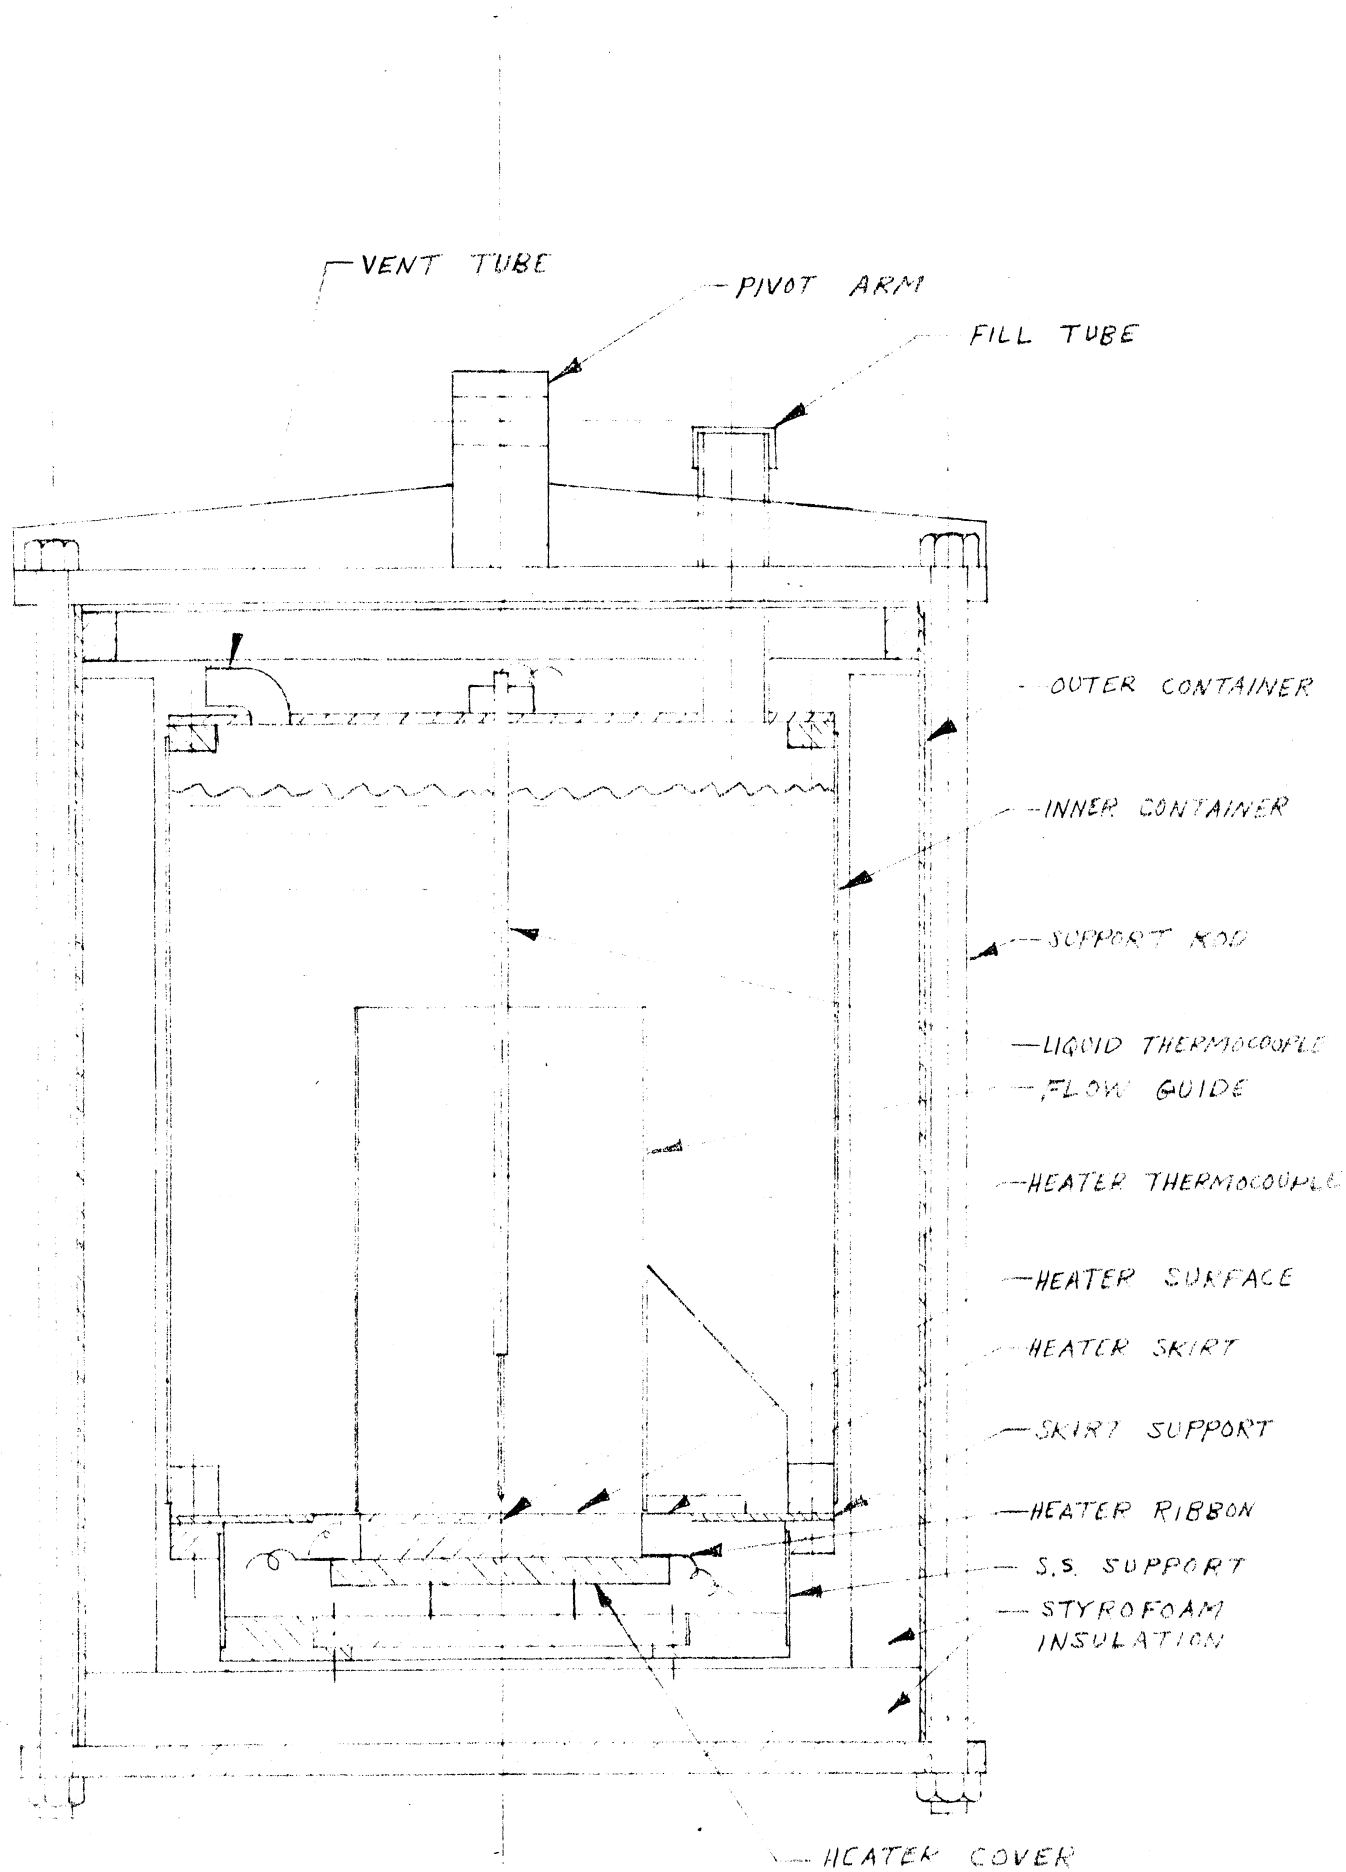 VENT TUBE
PIVOT ARM
FILL TUBE
OUTER CONTAINER
INNER CONTAINER
SUPPORT ROD
LIQUID THERMOCOUPLE
FLOW GUIDE
HEATER THERMOCOUPLE
HEATER SURFACE
HEATER SKIRT
SKIRT SUPPORT
HEATER RIBBON
S.S. SUPPORT
STYROFOAM
INSULATION
HEATER COVER